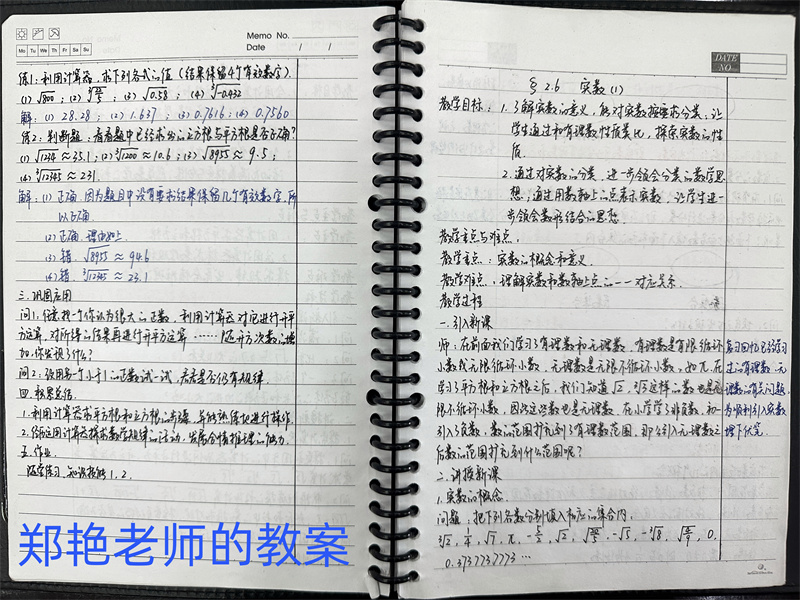 Mo Tu We Th Fr Sa Su
Memo No.
Date / /
练1:利用计算器,求下列各式的值(结果保留4个有效数字).
(1) √800 ; (2) ; (3) √0.58 ; (4) ∛-0.432
解:(1) 28.28 ; (2) 1.637 ; (3) 0.7616 ; (4) 0.7560
练2:判断题:看看题中已给求出的立方根与平方根是否正确?
(1) √1234 ≈ 35.1 ; (2) ∛1200 ≈ 10.6 ; (3) √8955 ≈ 9.5 ;
(4) ∛12345 ≈ 231.
解:(1) 正确. 因为题目中没有要求结果保留几个有效数字,所
以正确
(2) 正确. 理由如上
(3) 错. √8955 ≈ 94.6
(4) 错. ∛12345 ≈ 23.1
三. 巩固应用
问1:任意找一个你认为很大的正数,利用计算器对它进行开平
方运算,对所得的结果再进行开平方运算……随开方次数的增
加,你发现了什么?
问2:改用另一个小于1的正数试一试,看看是否仍有规律.
四.
1. 利用计算器求平方根和立方根的步骤,并能熟练地进行操作
2. 经历运用计算器探求数学规律的活动,发展合情推理的能力.
五. 作业.
随堂练习. 知识技能1、2.
郑艳老师的教案
DATE
NO
§ 2.6 实数(1)
教学目标:1. 了解实数的意义,能对实数按要求分类,让
学生通过和有理数性质类比,探索实数的性
质.
2. 通过对实数的分类,进一步领会分类的数学思
想;通过用数轴上的点表示实数,让学生进一
步领会数形结合的思想.
教学重点与难点.
教学重点:实数的概念和意义.
教学难点:理解实数和数轴上点的一一对应关系.
教学过程
一. 引入新课
师:在前面我们学习了有理数和无理数,有理数是有限循环
小数或无限循环小数,无理数是无限不循环小数,如π,在
学习了平方根和立方根之后,我们知道√2, ∛5这样的数也是无
限不循环小数,因此这些数也是无理数,在小学学了非负数,初一
引入了负数,数的范围扩充到了有理数范围,那么引入无理数之
后数的范围扩充到什么范围呢?
复习回忆已经学习
过的有理数、无
理数的有关问题,
为顺利引入实数
埋下伏笔.
二. 讲授新课
1. 实数的概念
问题:把下列各数分别填入相应的集合内.
∛2, 1/4, √7, π, -5/2, √2, , -√5, -∛8, √4/9, 0,
0.3737737773…